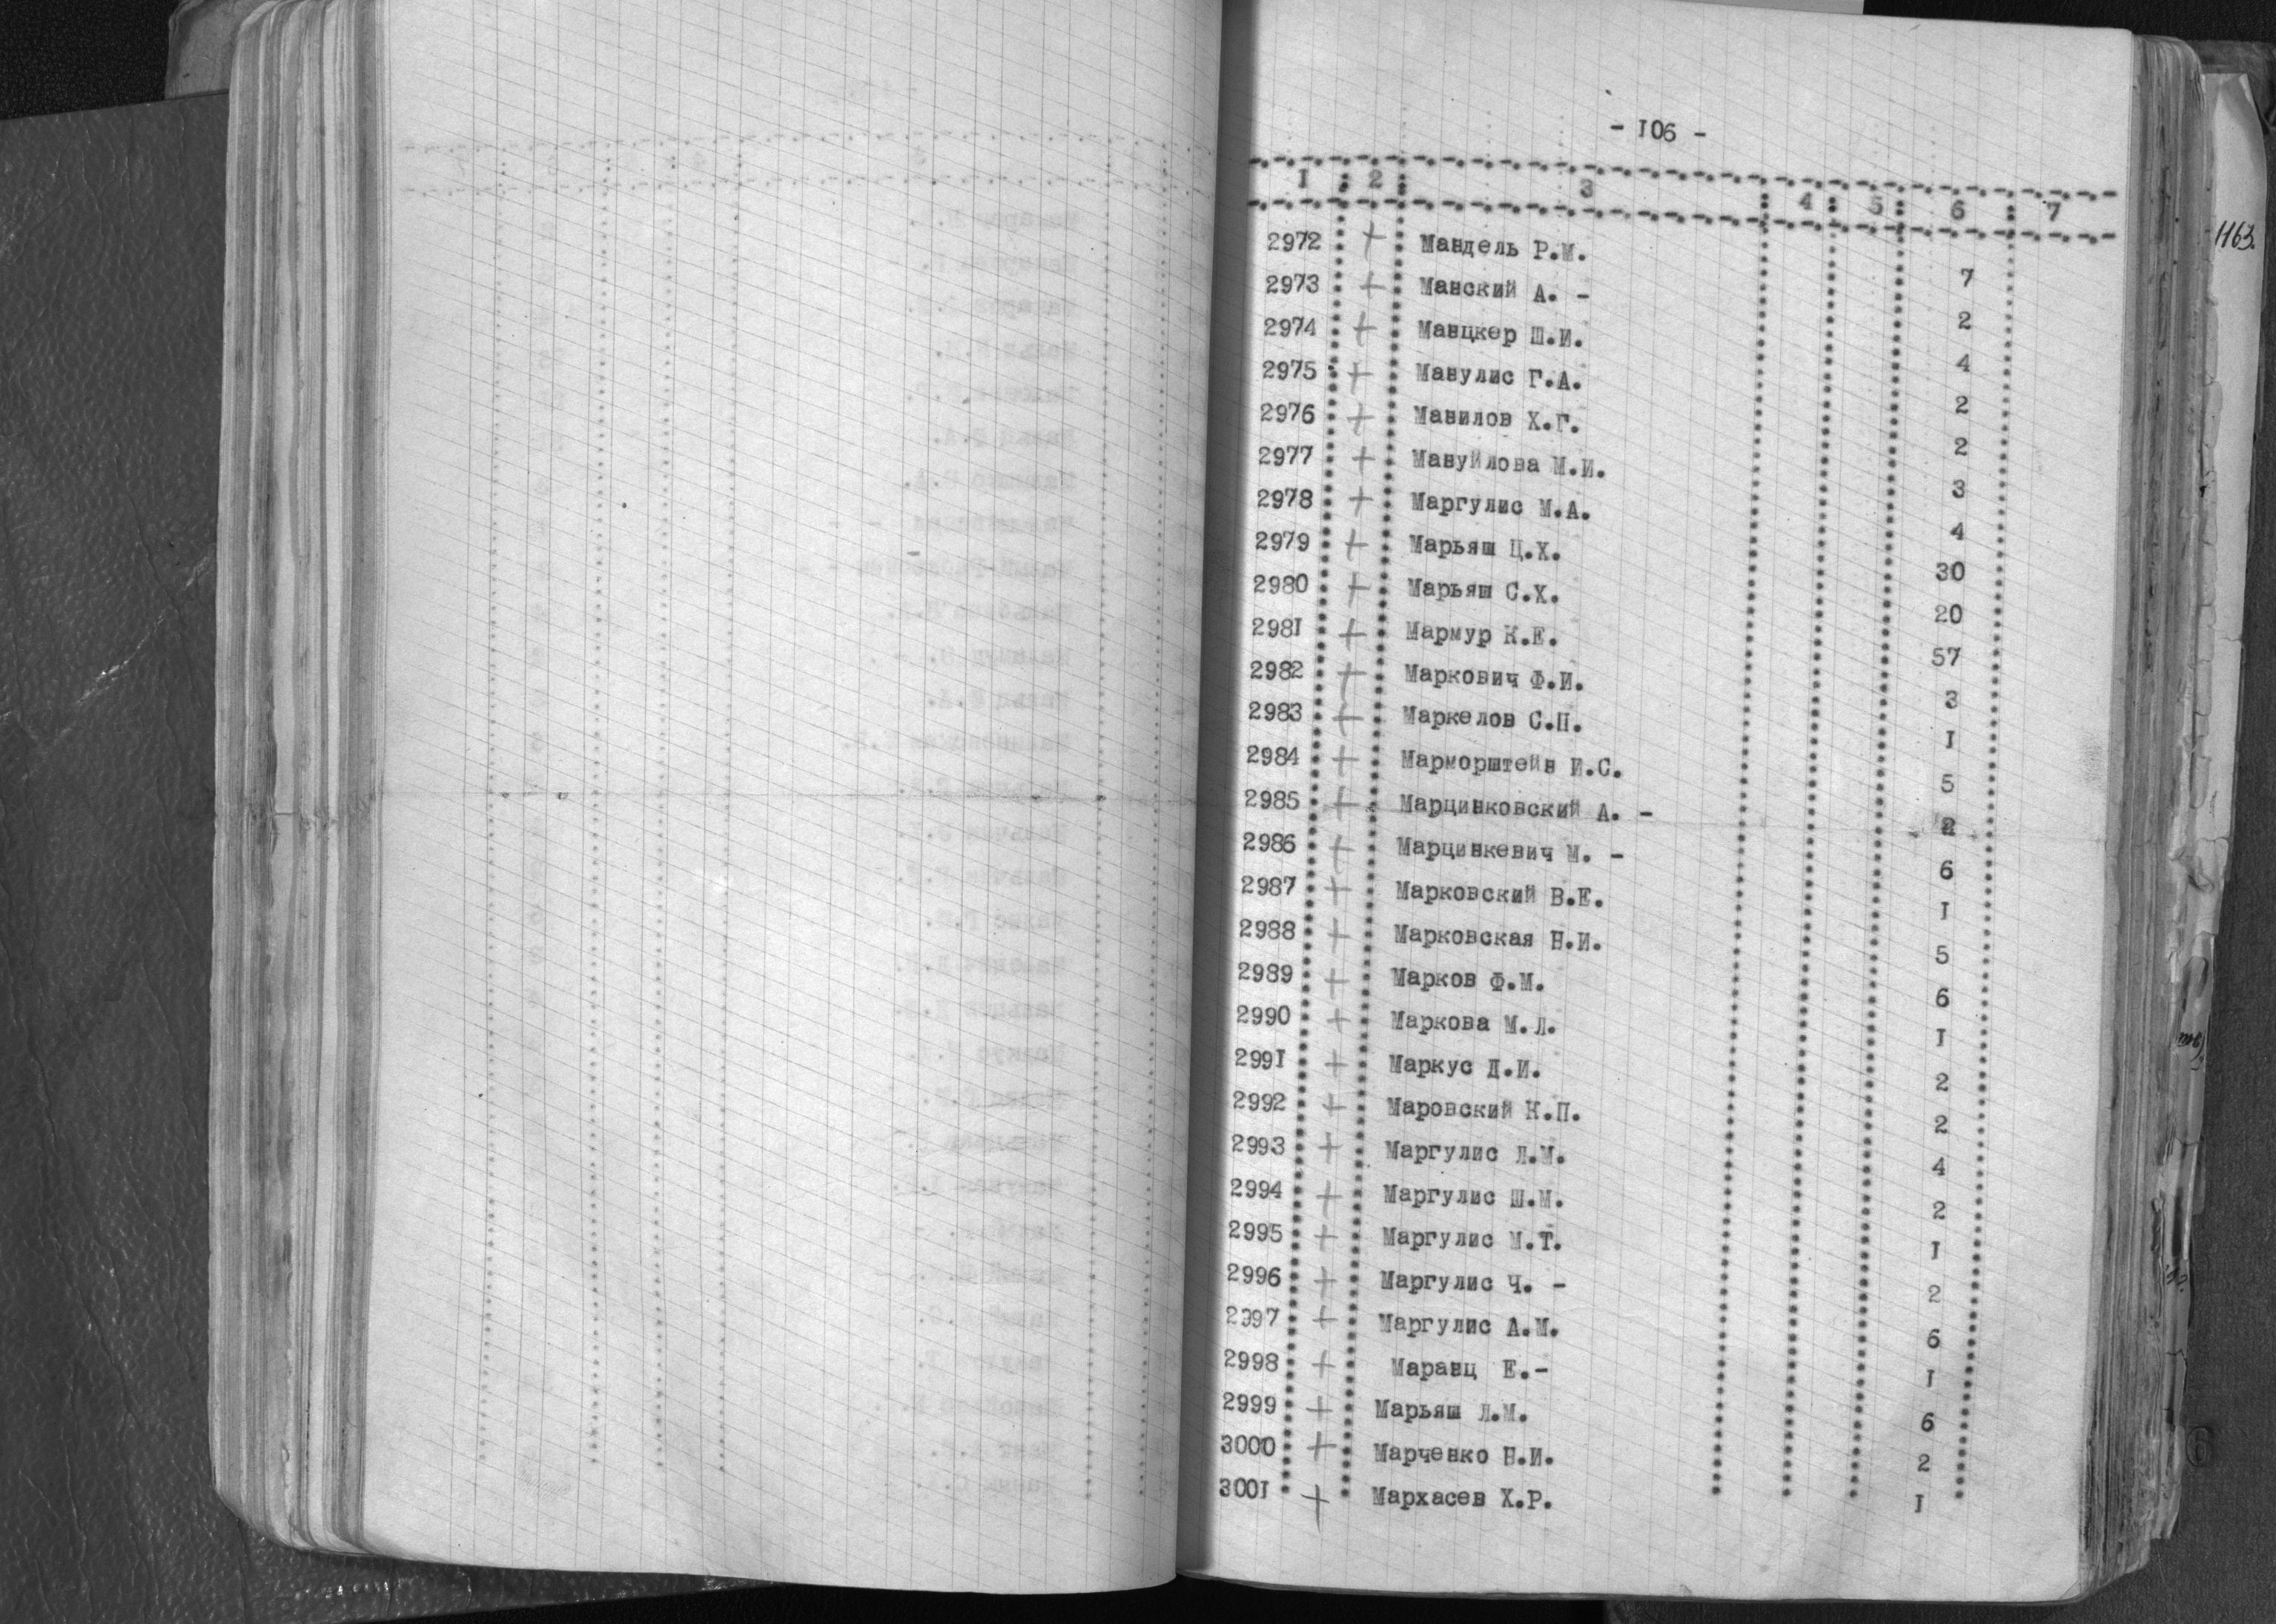 - I06 -
I 2 3 4 5 6 7
1163.
2972 + Мандель Р.М. 7
2973 + Манский А. - 2
2974 + Манцкер Ш.И. 4
2975 + Манулис Г.А. 2
2976 + Манилов Х.Г. 2
2977 + Мануйлова М.И. 3
2978 + Маргулис М.А. 4
2979 + Марьяш Ц.Х. 30
2980 + Марьяш С.Х. 20
298I + Мармур К.Е. 57
2982 + Маркович Ф.И. 3
2983 + Маркелов С.П. I
2984 + Марморштейн И.С. 5
2985 + Марцинковский А. - 2
2986 + Марцинкевич М. - 6
2987 + Марковский В.Е. I
2988 + Марковская Н.И. 5
2989 + Марков Ф.М. 6
2990 + Маркова М.Л. I
299I + Маркус Д.И. 2
2992 + Маровский К.П. 2
2993 + Маргулис Л.М. 4
2994 + Маргулис Ш.М. 2
2995 + Маргулис М.Т. I
2996 + Маргулис Ч. - 2
2997 + Маргулис А.М. 6
2998 + Маранц Е.- I
2999 + Марьяш Л.М. 6
3000 + Марченко Н.И. 2
300I + Мархасев Х.Р. I